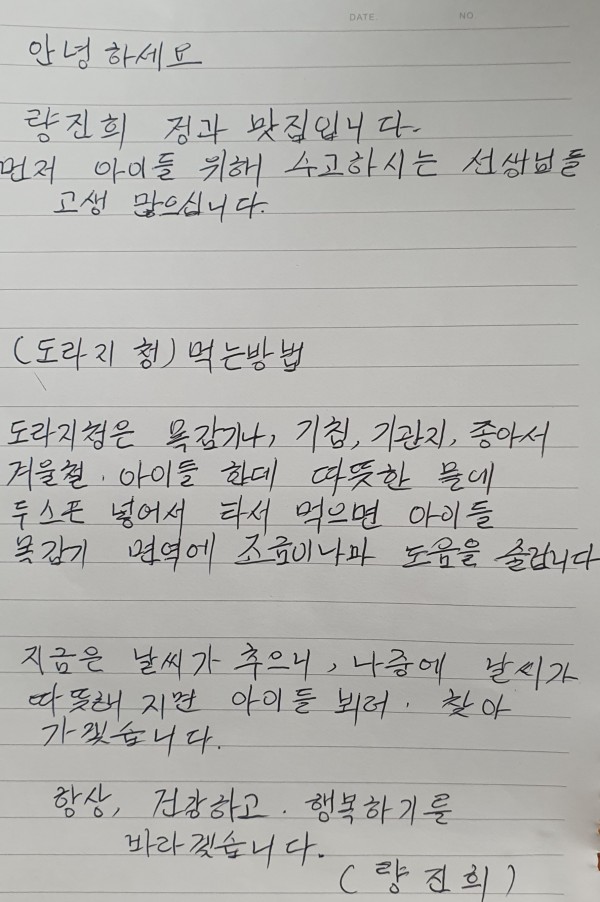 DATE. NO.
안녕하세요
량진희 정과 맛집입니다.
먼저 아이들 위해 수고하시는 선생님들
고생 많으십니다.
(도라지 청) 먹는방법
도라지청은 목감기나, 기침, 기관지, 좋아서
겨울철. 아이들 한데 따뜻한 물에
두스푼 넣어서 타서 먹으면 아이들
목감기 면역에 조금이나마 도음을 줄겁니다
지금은 날씨가 추으니, 나중에 날씨가
따뜻해 지면 아이들 뵈러. 찾아
가겠습니다.
항상, 건강하고. 행복하기를
바라겠습니다.
(량진희)